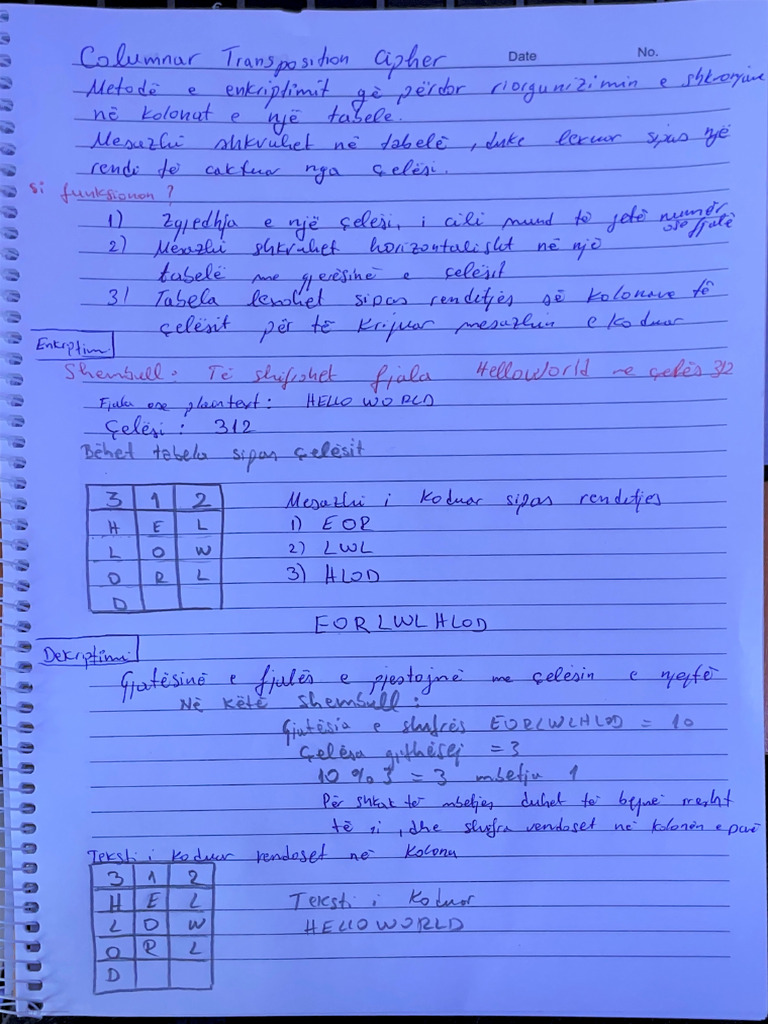 Columnar Transposition Cipher Date No.
Metodë e enkriptimit që përdor riorgunizimin e shkronjave
në kolonat e një tabele.
Mesazhi shkruhet në tabelë, duke lexuar sipas një
rendi të caktuar nga çelësi.
si funksionon?
1) Zgjedhja e një çelësi, i cili mund të jetë numër ose fjalë
2) Mesazhi shkruhet horizontalisht në një
tabelë me gjerësinë e çelësit
3) Tabela lexohet sipas renditjes së kolonave të
çelësit për të krijuar mesazhin e koduar
Enkriptimi
Shembull: Të shifrohet fjala Helloworld me çelës 312
Fjala ose plaintext: HELLO WORLD
Çelësi: 312
Bëhet tabela sipas çelësit
3 1 2 Mesazhi i koduar sipas renditjes
H E L 1) EOR
L O W 2) LWL
O R L 3) HLOD
D
EORLWLHLOD
Dekriptimi
Gjatësinë e fjalës e pjestojmë me çelësin e njejtë
Në këtë shembull:
Gjatësia e shifrës EORLWLHLOD = 10
Çelësa gjithësej = 3
10 % 3 = 3 mbetja 1
Për shkak të mbetjes duhet të bëjmë rresht
të ri, dhe shifra vendoset në kolonën e parë
Teksti i koduar vendoset në kolona
3 1 2
H E L Teksti i koduar
L O W HELLOWORLD
O R L
D